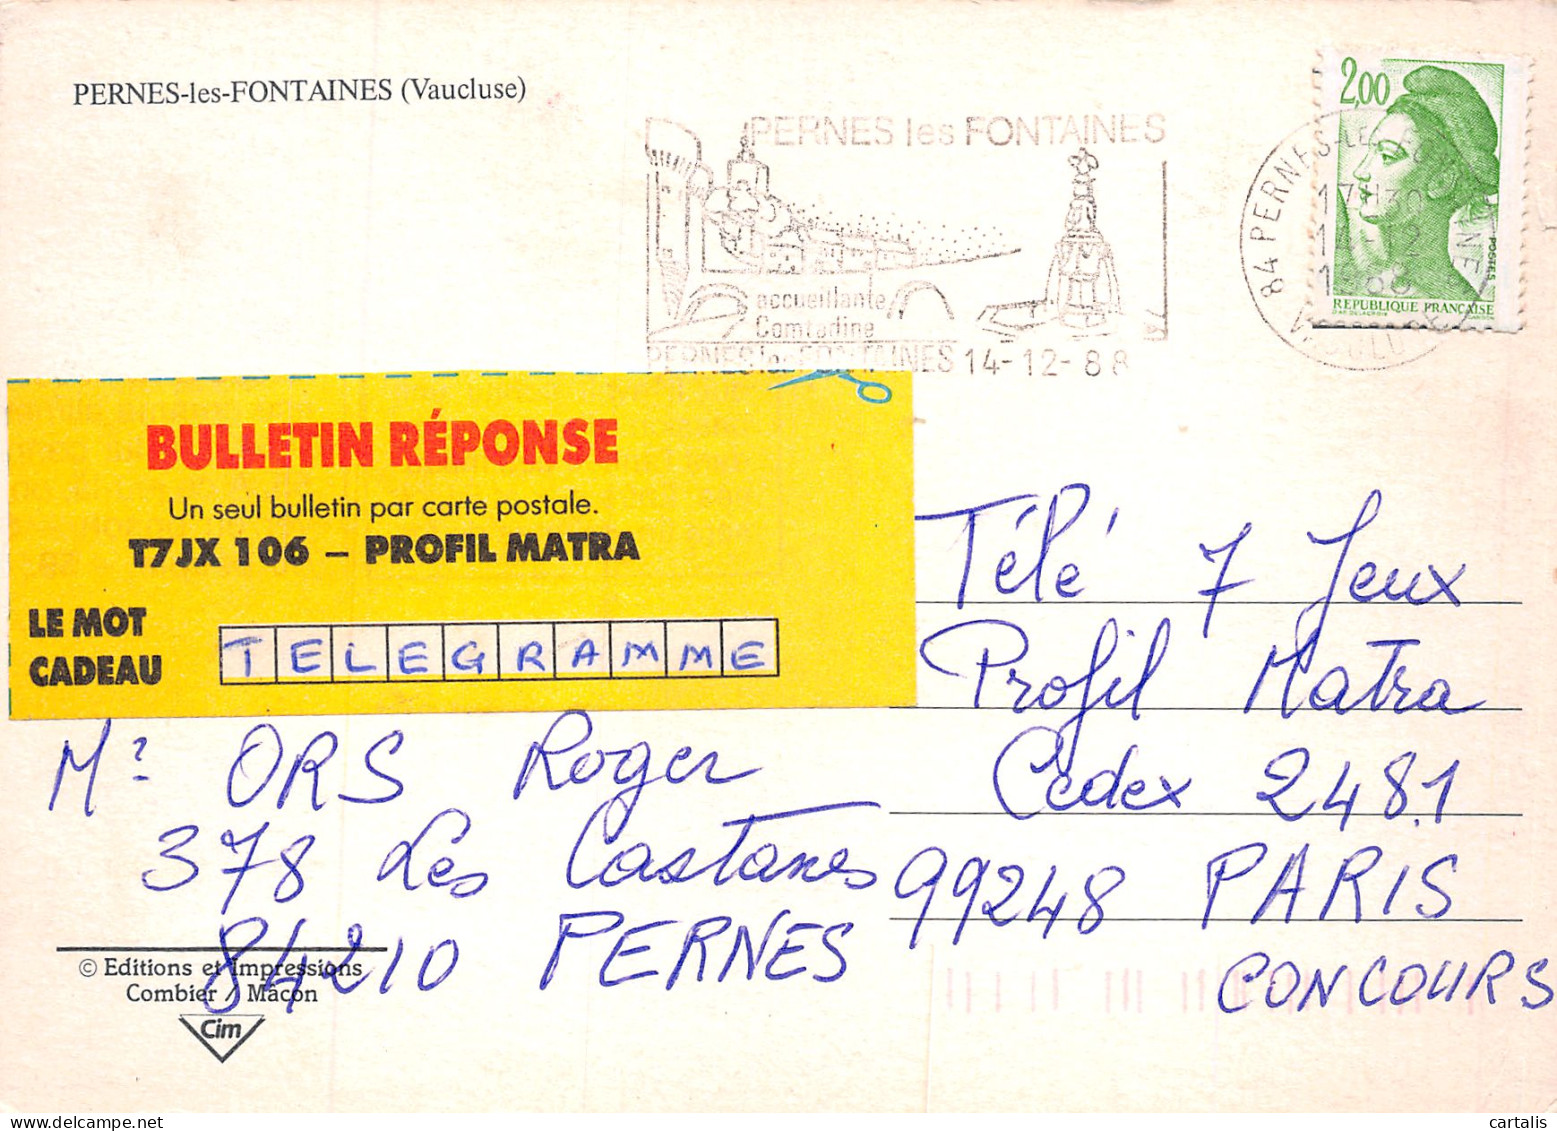 PERNES-les-FONTAINES (Vaucluse)
PERNES les FONTAINES
accueillante
Comtadine
PERNES les FONTAINES 14-12-88
2,00
84 PERNES-LES-FONTAINES
17H30
14-12
1988
VAUCLUSE
POSTES
REPUBLIQUE FRANÇAISE
BULLETIN RÉPONSE
Un seul bulletin par carte postale.
T7JX 106 – PROFIL MATRA
LE MOT
CADEAU
TELEGRAMME
Télé 7 Jeux
Profil Matra
Cedex 2481
99248 PARIS
CONCOURS
Mr ORS Roger
378 Les Castanes
84210 PERNES
© Editions et Impressions
Combier / Mâcon
Cim
cartalis